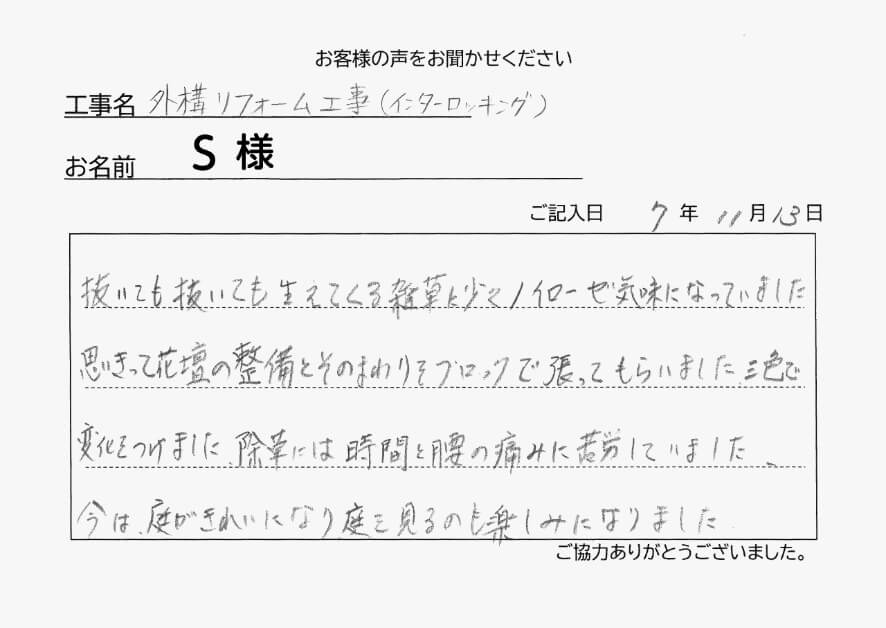 お客様の声をお聞かせください
工事名 外構リフォーム工事(インターロッキング)
お名前 S 様
ご記入日 7年 11月13日
抜いても抜いても生えてくる雑草に少々ノイローゼ気味になっていました
思いきって花壇の整備とそのまわりをブロックで張ってもらいました 三色で
変化をつけました、除草には時間と腰の痛みに苦労していました、
今は、庭がきれいになり庭を見るのも楽しみになりました
ご協力ありがとうございました。